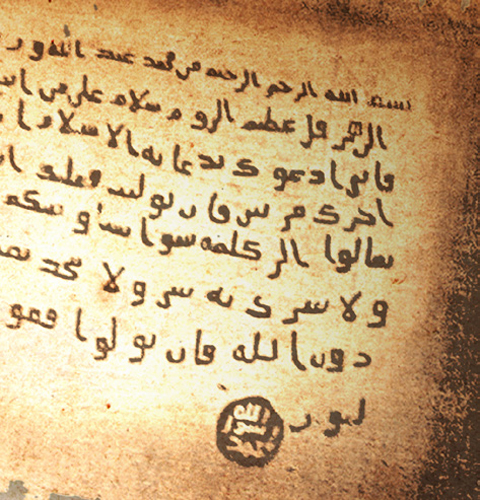 بسم الله الرحمن الرحيم من محمد عبد الله ور
الى هرقل عظيم الروم سلام على من ا
فاني ادعوك بدعايه الاسلام ا
اجرك مرتين فان توليت فعليك ا
تعالوا الى كلمه سوا بيننا و بينكم
ولا نشرك به شيا ولا يتخذ بعض
دون الله فان تولوا فقو
لمون
الله
رسول
محمد